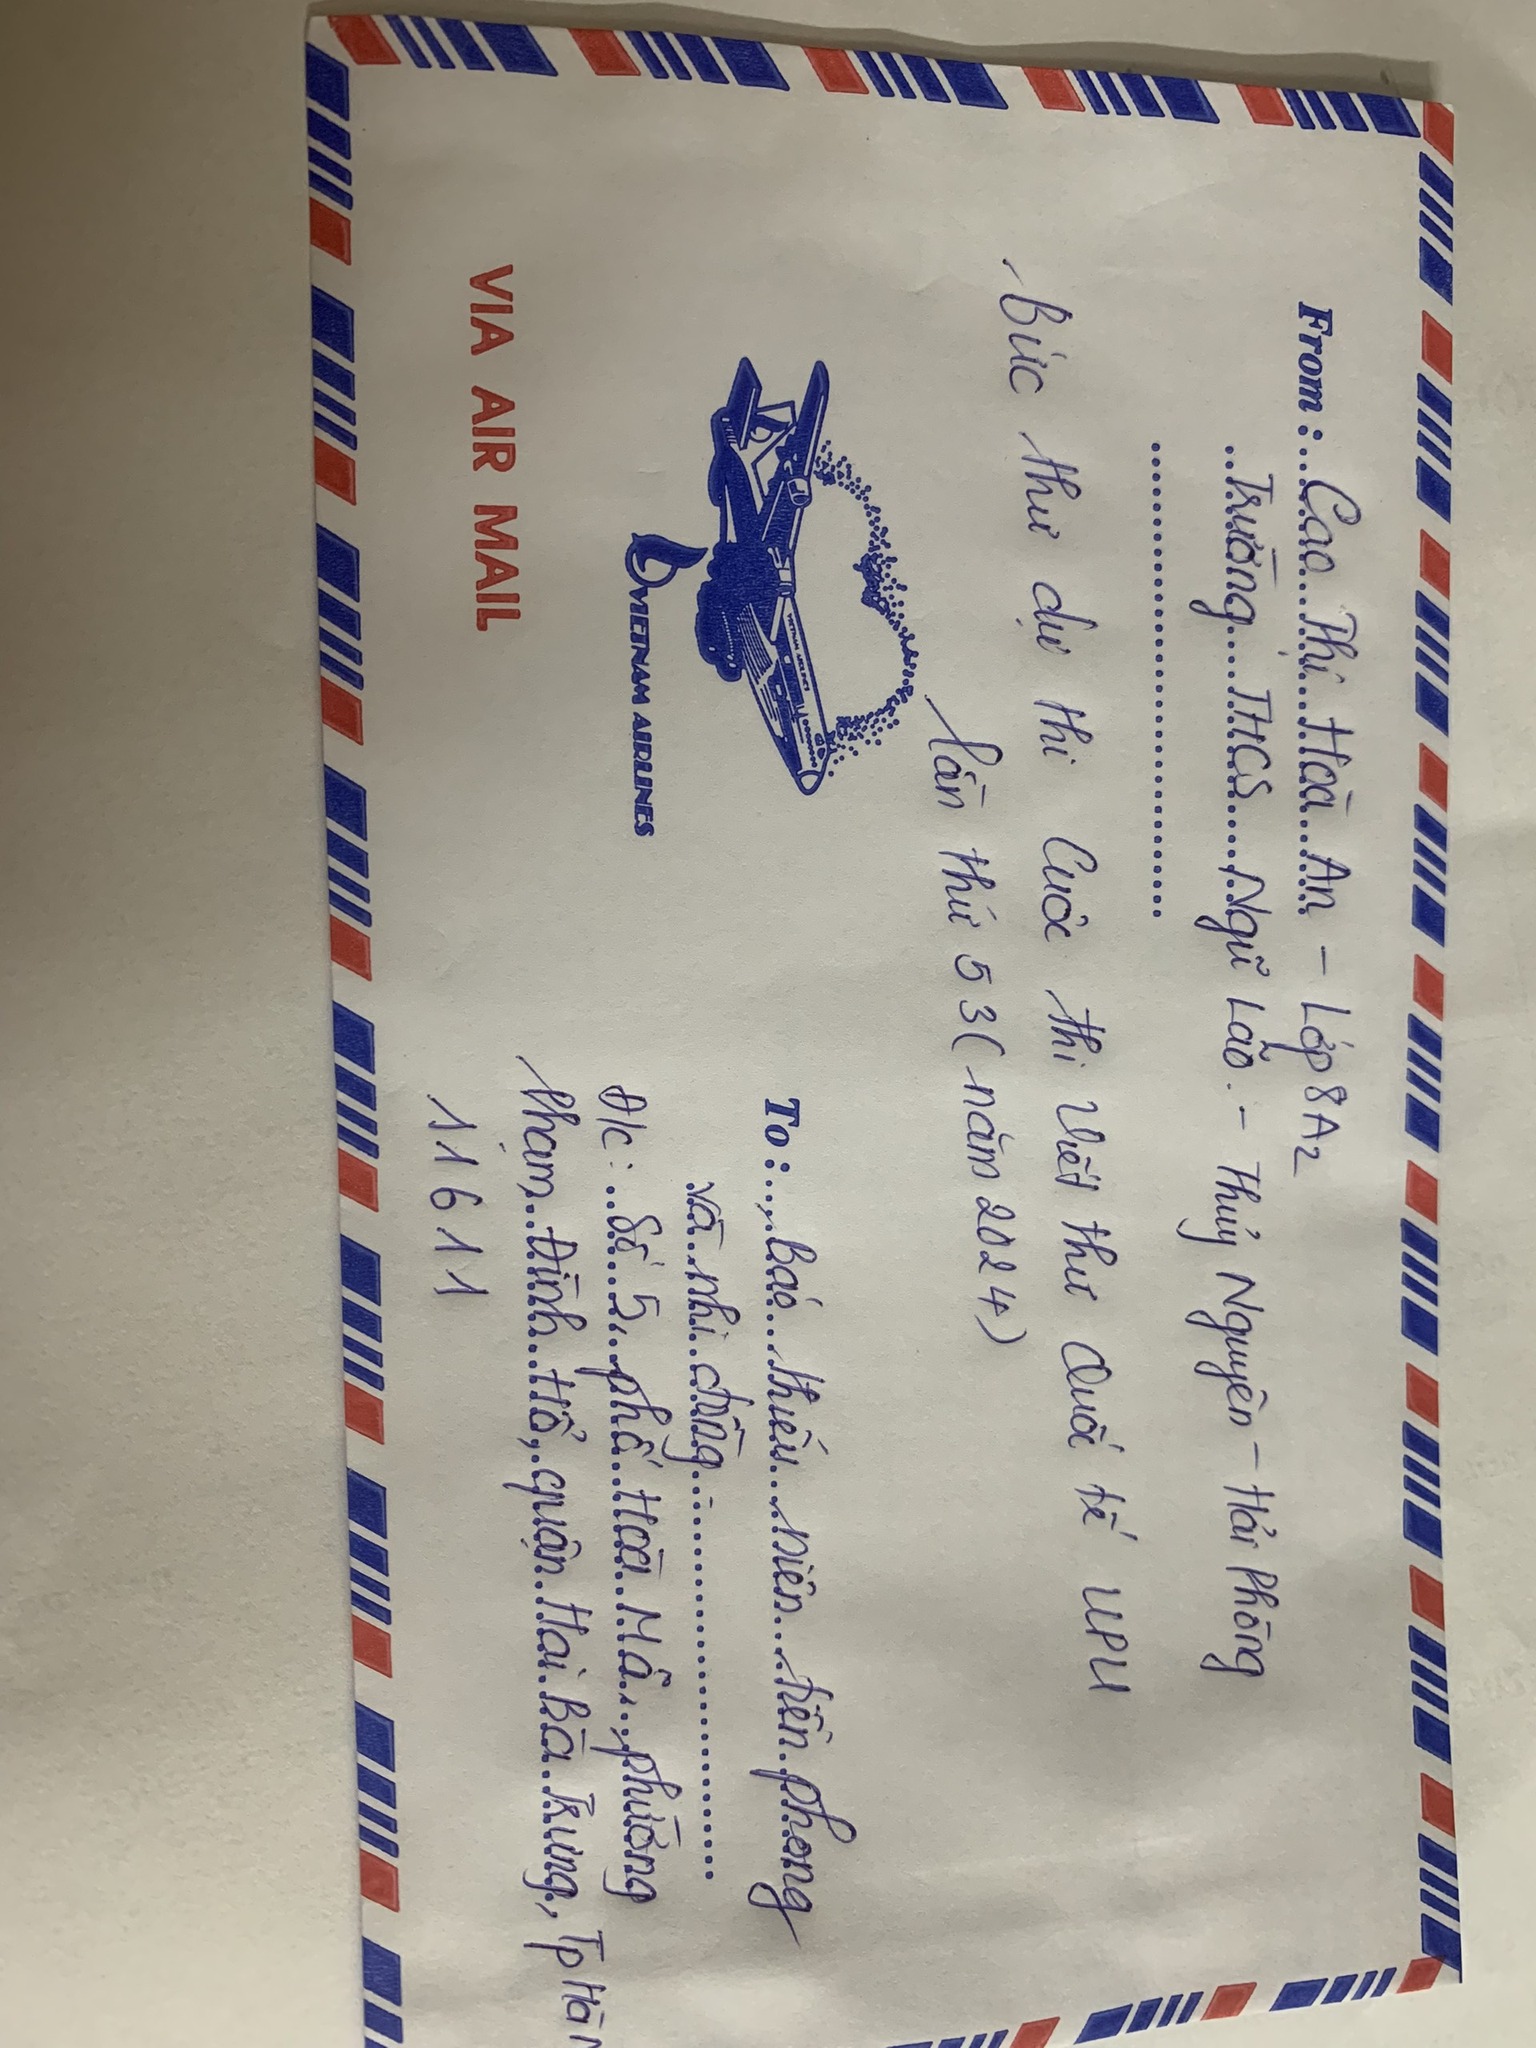 From: Cao Thị Hoài An - Lớp 8A2
Trường THCS Ngũ Lão - Thuỷ Nguyên - Hải Phòng
Bức thư dự thi Cuộc thi Viết thư Quốc tế UPU
lần thứ 53 (năm 2024)
VIETNAM AIRLINES
VIETNAM AIRLINES
VIA AIR MAIL
To: báo thiếu niên tiền phong
và nhi đồng
Đ/c: Số 5, phố Hoà Mã, phường
Phạm Đình Hổ, quận Hai Bà Trưng, Tp Hà
11611